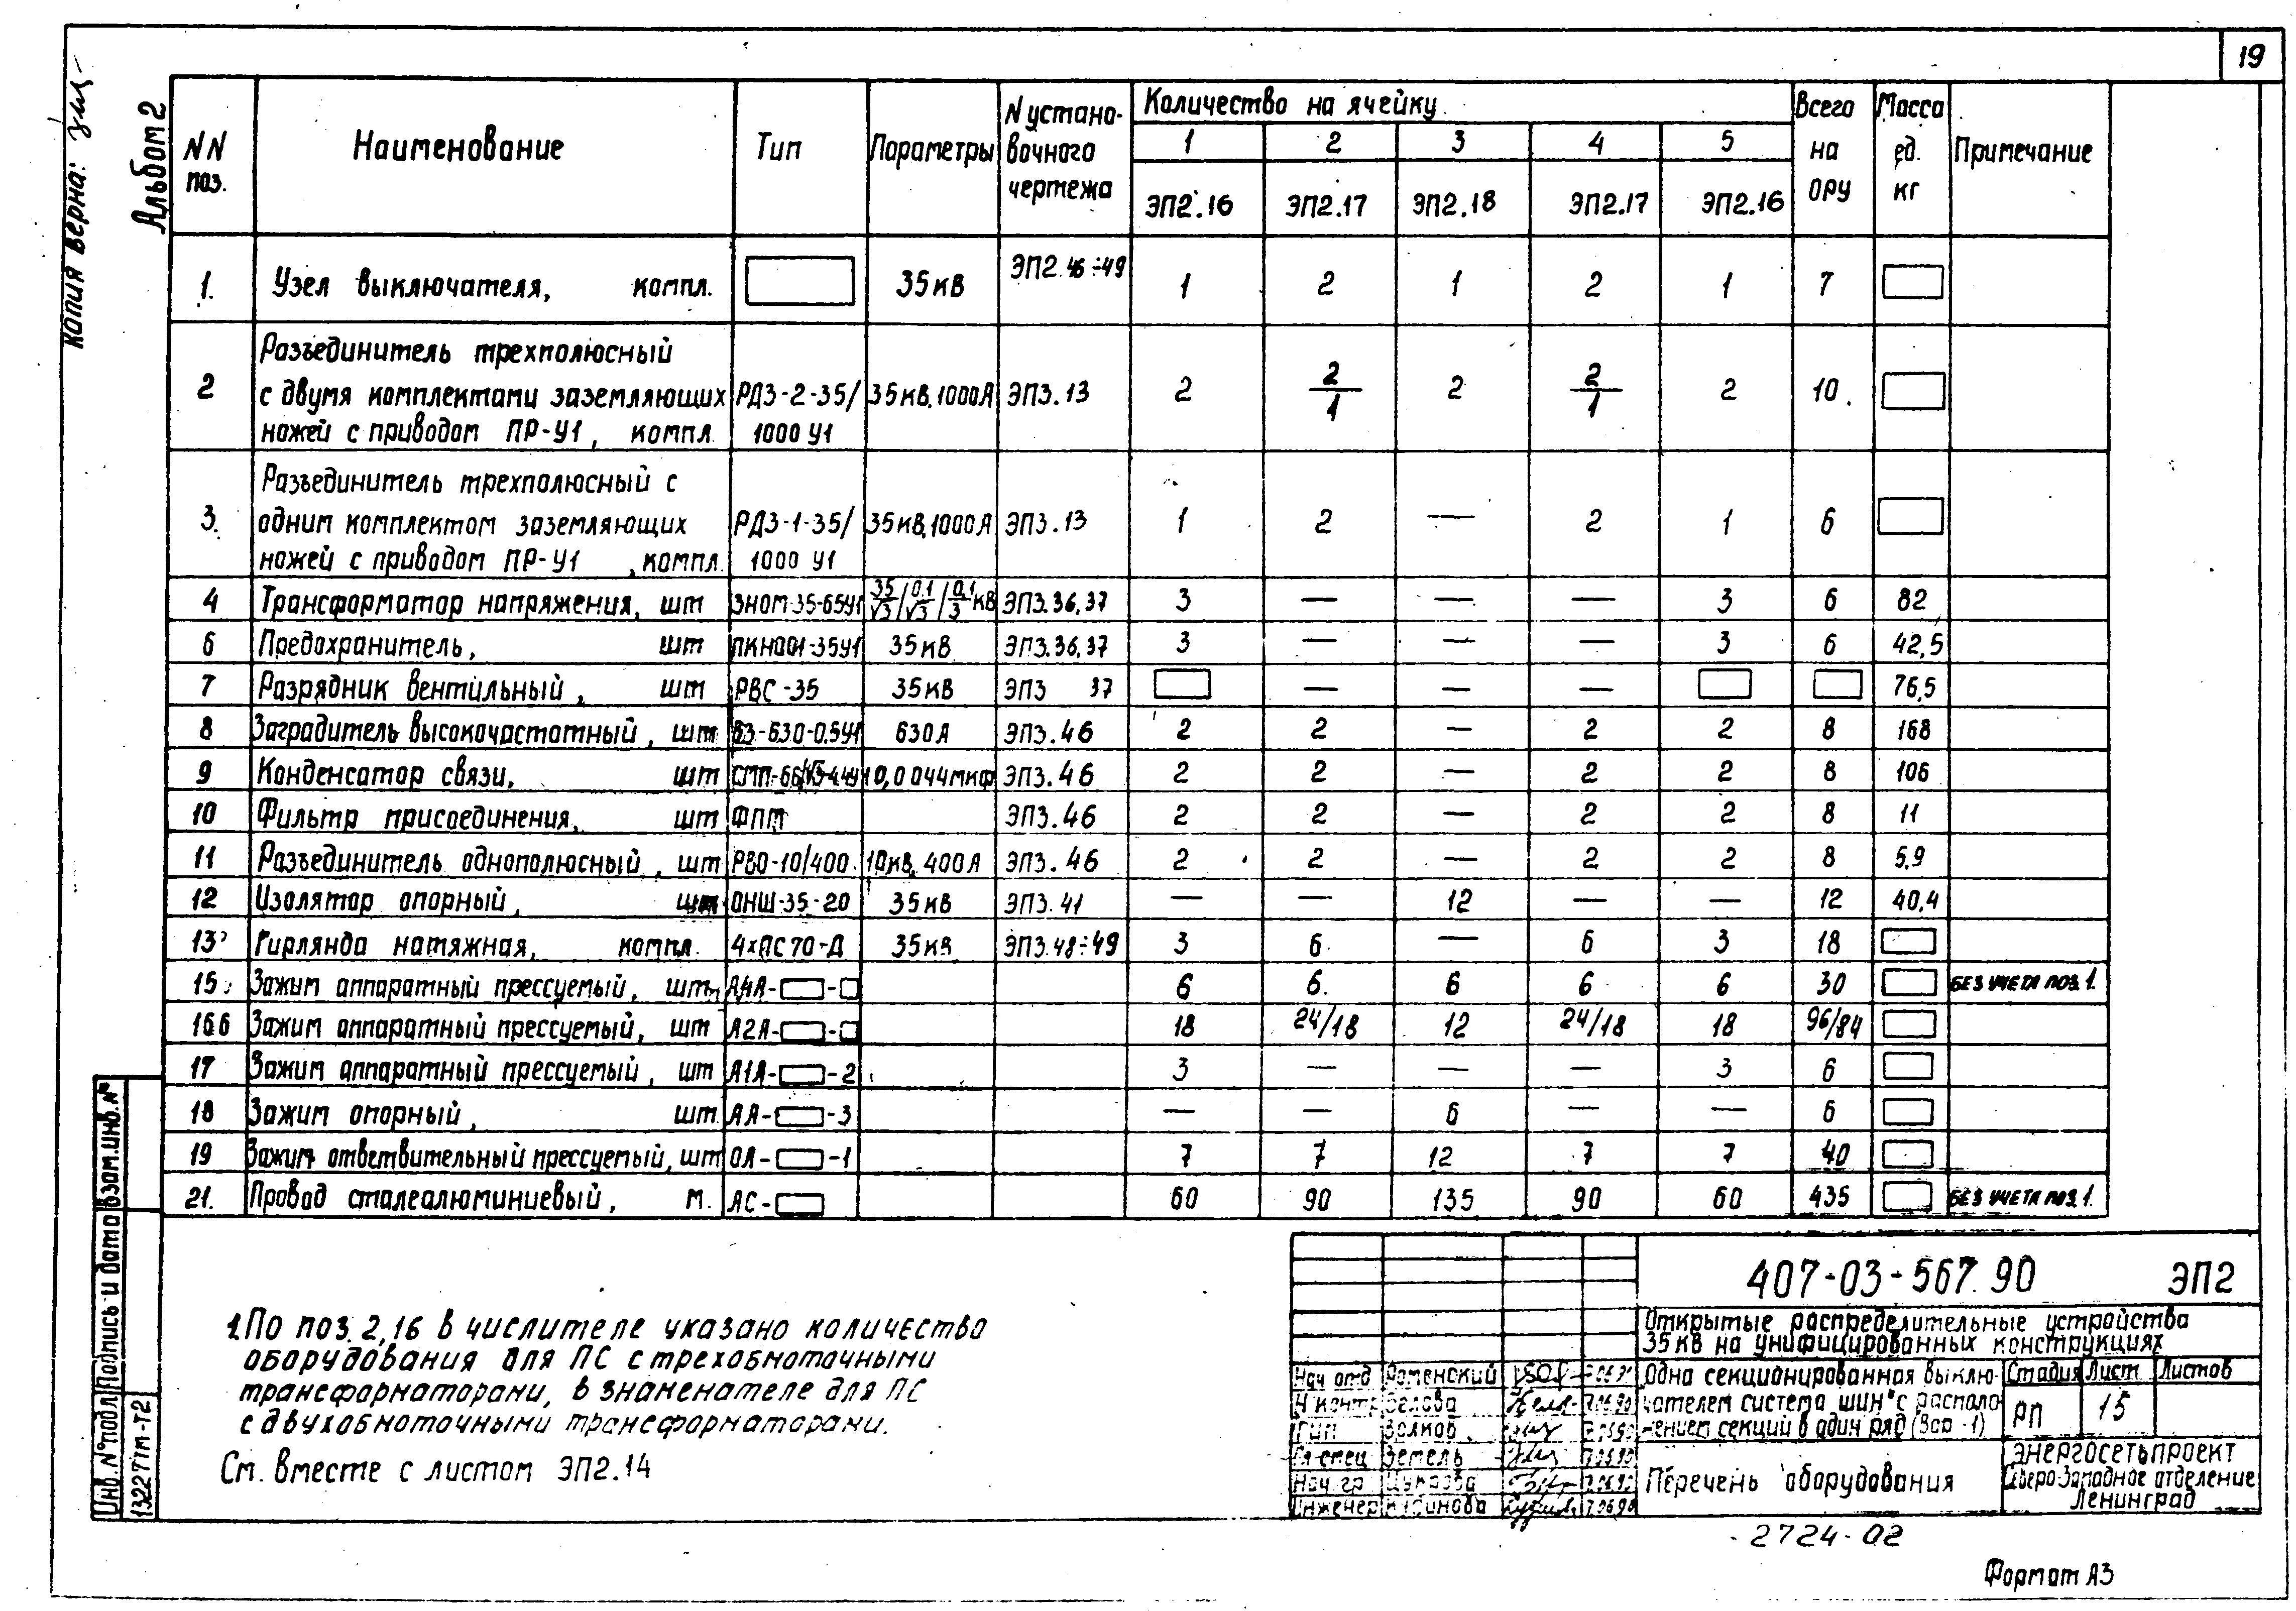 19
Копия верна:
Альбом 2
NN поз. | Наименование | Тип | Параметры | N устано-вочного чертежа | Количество на ячейку | Всего на ОРУ | Масса ед. кг | Примечание
1 | 2 | 3 | 4 | 5
ЭП2.16 | ЭП2.17 | ЭП2.18 | ЭП2.17 | ЭП2.16
1. | Узел выключателя, компл. | 35кВ | ЭП2.46÷49 | 1 | 2 | 1 | 2 | 1 | 7
2 | Разъединитель трехполюсный
с двумя комплектами заземляющих | РДЗ-2-35/ | 35кВ,1000А | ЭП3.13 | 2 | 2/1 | 2 | 2/1 | 2 | 10.
ножей с приводом ПР-У1, компл | 1000 У1
3. | Разъединитель трехполюсный с
одним комплектом заземляющих | РДЗ-1-35/ | 35кВ,1000А | ЭП3.13 | 1 | 2 | — | 2 | 1 | 6
ножей с приводом ПР-У1 , компл. | 1000 У1
4 | Трансформатор напряжения, шт | ЗНОМ-35-65У1 | 35/√3/0.1/√3/0.1/3 кВ | ЭП3.36,37 | 3 | — | — | — | 3 | 6 | 82
6 | Предохранитель, шт | ПКН001-35У1 | 35кВ | ЭП3.36,37 | 3 | — | — | — | 3 | 6 | 42,5
7 | Разрядник вентильный, шт | РВС-35 | 35кВ | ЭП3 37 | — | — | — | 76,5
8 | Заградитель высокочастотный, шт | ВЗ-630-0.5У1 | 630А | ЭП3.46 | 2 | 2 | — | 2 | 2 | 8 | 168
9 | Конденсатор связи, шт | 0,0044мкФ | ЭП3.46 | 2 | 2 | — | 2 | 2 | 8 | 106
10 | Фильтр присоединения, шт | ФПМ | ЭП3.46 | 2 | 2 | — | 2 | 2 | 8 | 11
11 | Разъединитель однополюсный, шт | РВО-10/400 | 10кВ, 400А | ЭП3.46 | 2 | 2 | — | 2 | 2 | 8 | 5,9
12 | Изолятор опорный, шт | ОНШ-35-20 | 35кВ | ЭП3.41 | — | — | 12 | — | — | 12 | 40,4
13 | Гирлянда натяжная, компл. | 4хПС70-Д | 35кВ | ЭП3.48÷49 | 3 | 6 | — | 6 | 3 | 18
15 | Зажим аппаратный прессуемый, шт | А4А- - | 6 | 6. | 6 | 6 | 6 | 30 | БЕЗ УЧЕТА ПОЗ.1.
166 | Зажим аппаратный прессуемый, шт | А2А- - | 18 | 24/18 | 12 | 24/18 | 18 | 96/84
17 | Зажим аппаратный прессуемый, шт | А1А- -2 | 3 | — | — | — | 3 | 6
18 | Зажим опорный, шт. | АА- -3 | — | — | 6 | — | — | 6
19 | Зажим ответвительный прессуемый, шт | ОА- -1 | 7 | 7 | 12 | 7 | 7 | 40
21. | Провод сталеалюминиевый, м. | АС- | 60 | 90 | 135 | 90 | 60 | 435 | БЕЗ УЧЕТА ПОЗ.1.
1.По поз. 2,16 в числителе указано количество
оборудования для ПС с трехобмоточными
трансформаторами, в знаменателе для ПС
с двухобмоточными трансформаторами.
См. вместе с листом ЭП2.14
407-03-567.90 ЭП2
Открытые распределительные устройства
35 кВ на унифицированных конструкциях
Нач отд | Роменский
Н контр
ГИП | Волков
Гл спец | Земель
Нач. гр
Инженер
"Одна секционированная выклю-
чателем система шин" с располо-
жением секций в один ряд (Вар - 1)
Стадия | Лист | Листов
РП | 15
Перечень оборудования
ЭНЕРГОСЕТЬПРОЕКТ
Северо-Западное отделение
Ленинград
Взам.инв.№
Подпись и дата
Инв.№ подл
13227тм-т2
-2724-02
Формат А3